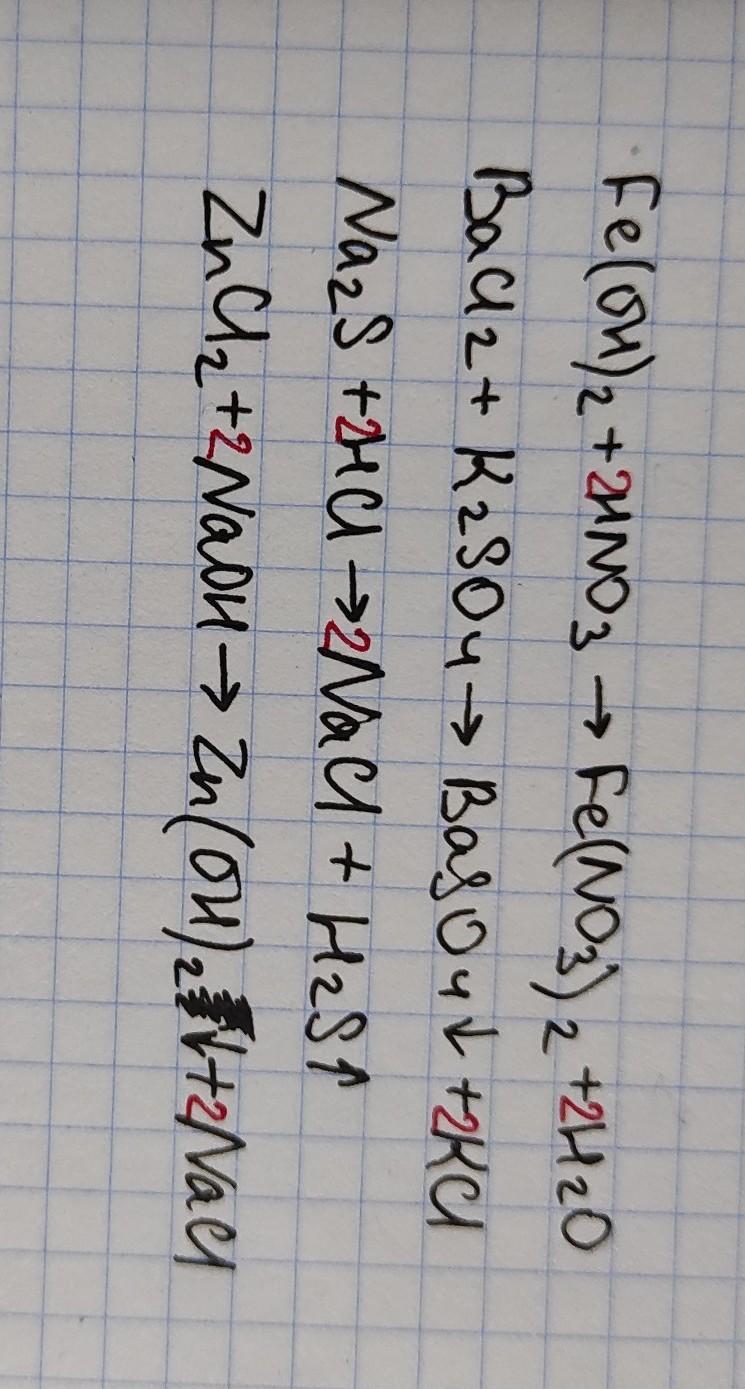 Fe(OH)₂ + 2HNO₃ → Fe(NO₃)₂ + 2H₂O
BaCl₂ + K₂SO₄ → BaSO₄↓ + 2KCl
Na₂S + 2HCl → 2NaCl + H₂S↑
ZnCl₂ + 2NaOH → Zn(OH)₂↓ + 2NaCl